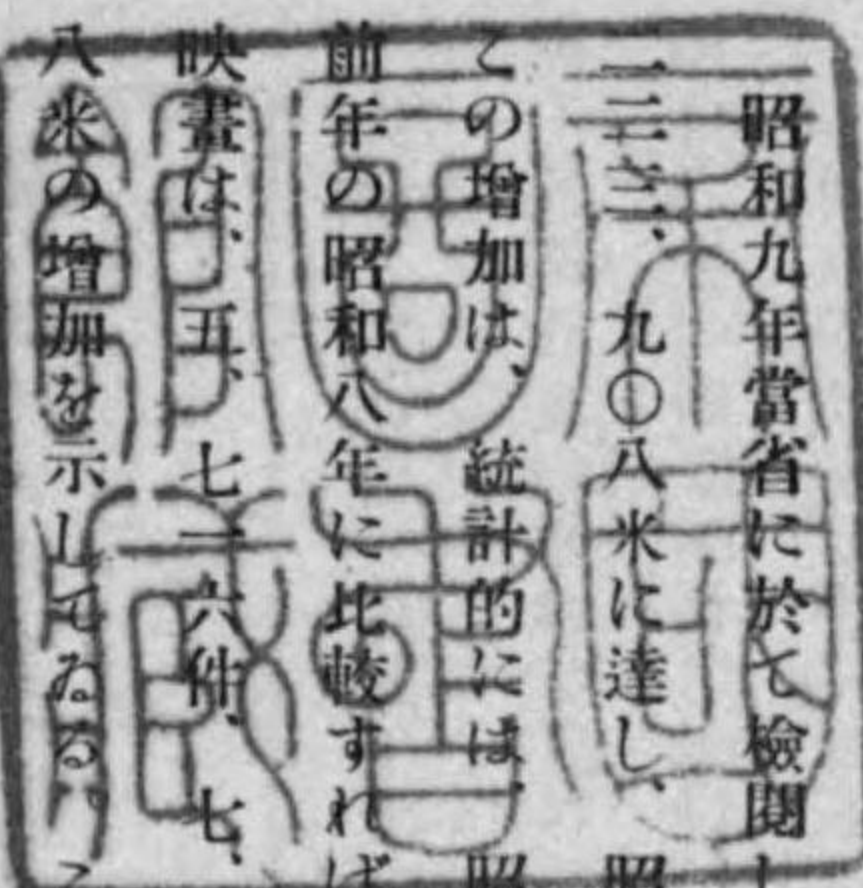 昭和九年當省に於て檢閲し
二三三、九〇八米に達し、昭
この增加は、統計的には、昭
前年の昭和八年に比較すれば
映畫は、五、七一六件、七、
八米の增加を示してゐる。こ